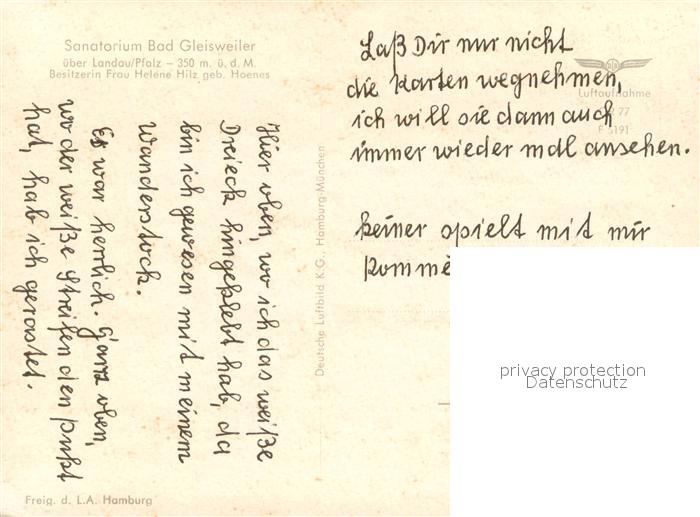 Sanatorium Bad Gleisweiler
über Landau/Pfalz — 350 m. ü. d. M.
Besitzerin Frau Helene Hilz geb. Hoenes
Hier oben, wo ich das weiße
Dreieck hingeklebt hab, da
bin ich gewesen mit meinem
Wanderstock.
Es war herrlich. Ganz oben,
wo der weiße Streifen den Punkt
hat, hab ich gerastet.
Freig. d. L.A. Hamburg
Deutsche Luftbild K.G., Hamburg-München
Laß Dir nur nicht
die Karten wegnehmen,
ich will sie dann auch
immer wieder mal ansehen.
Luftaufnahme
77
F 5191
keiner spielt mit mir
privacy protection
Datenschutz